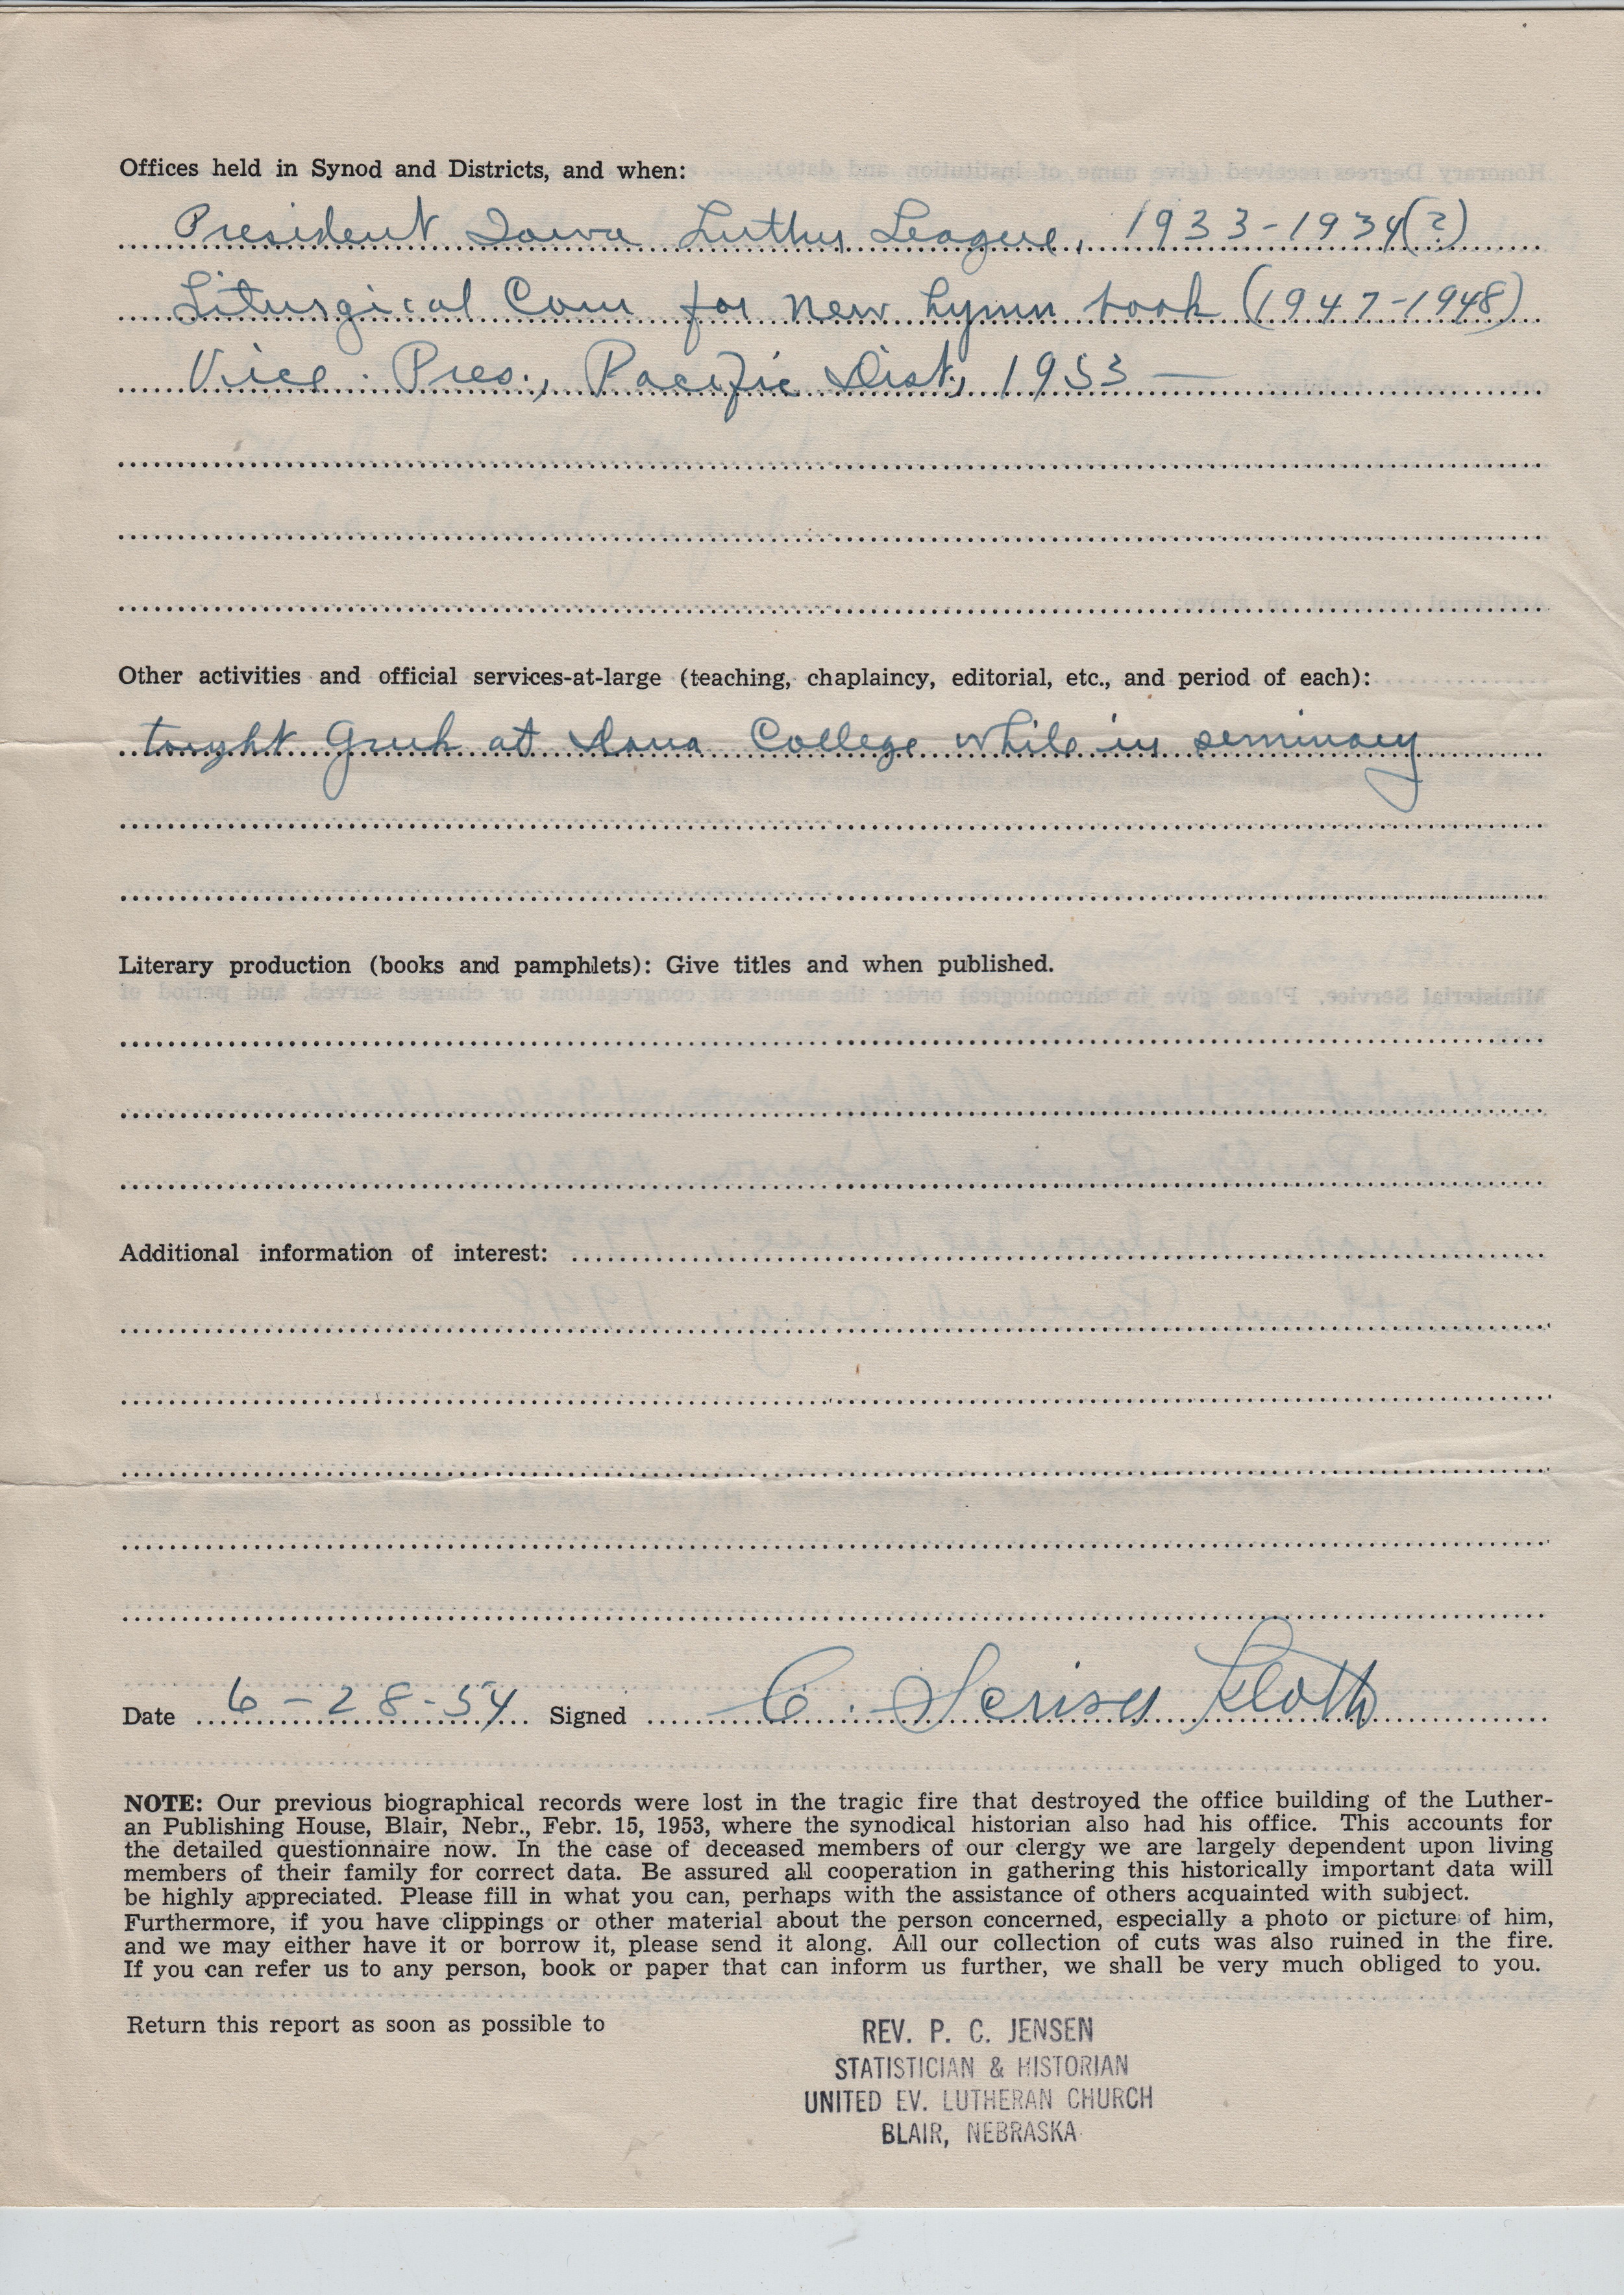 Offices held in Synod and Districts, and when:
President Iowa Luther League, 1933-1934(?)
Liturgical Com for new hymn book (1947-1948)
Vice. Pres., Pacific Dist, 1953 —
Other activities and official services-at-large (teaching, chaplaincy, editorial, etc., and period of each):
taught Greek at Dana College while in seminary
Literary production (books and pamphlets): Give titles and when published.
Additional information of interest:
Date 6-28-54 Signed C. Kloth
NOTE: Our previous biographical records were lost in the tragic fire that destroyed the office building of the Luther-
an Publishing House, Blair, Nebr., Febr. 15, 1953, where the synodical historian also had his office. This accounts for
the detailed questionnaire now. In the case of deceased members of our clergy we are largely dependent upon living
members of their family for correct data. Be assured all cooperation in gathering this historically important data will
be highly appreciated. Please fill in what you can, perhaps with the assistance of others acquainted with subject.
Furthermore, if you have clippings or other material about the person concerned, especially a photo or picture of him,
and we may either have it or borrow it, please send it along. All our collection of cuts was also ruined in the fire.
If you can refer us to any person, book or paper that can inform us further, we shall be very much obliged to you.
Return this report as soon as possible to
REV. P. C. JENSEN
STATISTICIAN & HISTORIAN
UNITED EV. LUTHERAN CHURCH
BLAIR, NEBRASKA